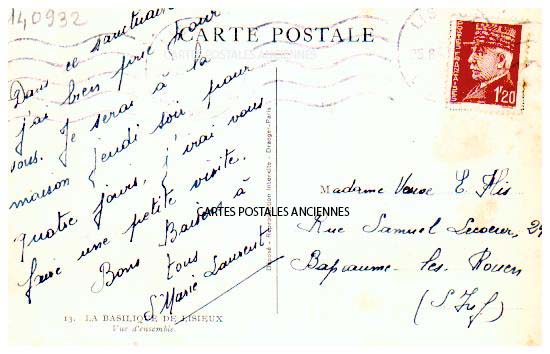 140932
CARTE POSTALE
CARTES POSTALES ANCIENNES
1f20
Dans ce sanctuaire
j'ai bien prié pour
vous. Je serai à la
maison jeudi soir pour
quatre jours, j'irai vous
faire une petite visite.
Bons Baisers à
tous
S Marie Laurent
CARTES POSTALES ANCIENNES
Madame Veuve E. Flis
Rue Samuel Lecoeur, 29
Bapaume-les-Rouen
(S. Inf)
Déposé - Reproduction Interdite - Draeger-Paris
13. LA BASILIQUE DE LISIEUX
Vue d'ensemble.